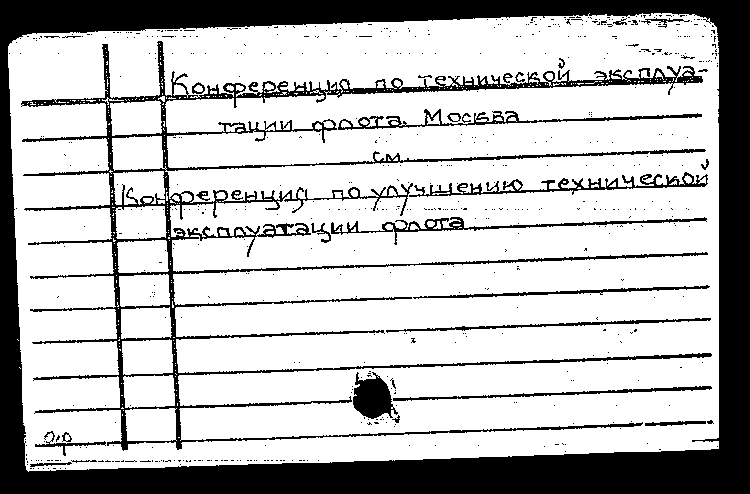 Конференция по технической эксплуа-
тации флота. Москва
см.
Конференция по улучшению технической
эксплуатации флота